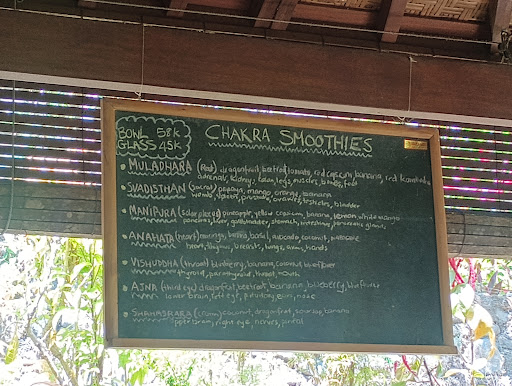 BOWL 58K
GLASS 45K
CHAKRA SMOOTHIES
• MULADHARA (Root) dragonfruit, beetroot, tomato, red capsicum, banana, red
adrenals, kidney, colon, legs, muscles, bones, feet
• SVADISTHAN (sacral) papaya, mango, orange, banana
womb, uterus, prostate, ovaries, testicles, bladder
• MANIPURA (solar plexus) pineapple, yellow capsicum, banana, lemon, white mango
pancreas, liver, gallbladder, stomach, intestines,
• ANAHATA (heart) moringa, banana, basil, avocado, coconut,
heart, breasts, lungs, arms, hands
• VISHUDDHA (throat) blueberry, banana, coconut, blueflower
thyroid, parathyroid, throat, mouth
• AJNA (third eye) dragonfruit, beetroot, banana, blueberry, blueflower
lower brain, left eye, pituitary, ears, nose
• SHAHADRARA (crown) coconut, dragonfruit, soursop, banana
upper brain, right eye, nerves, pineal